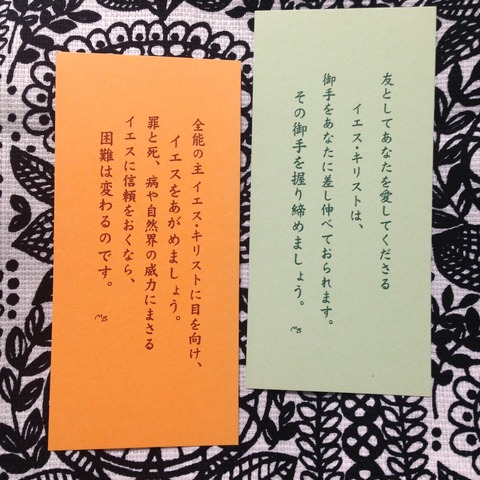 友としてあなたを愛してくださる
イエス・キリストは、
御手をあなたに差し伸べておられます。
その御手を握り締めましょう。
MB
全能の主イエス・キリストに目を向け、
イエスをあがめましょう。
罪と死、病や自然界の威力にまさる
イエスに信頼をおくなら、
困難は変わるのです。
MB